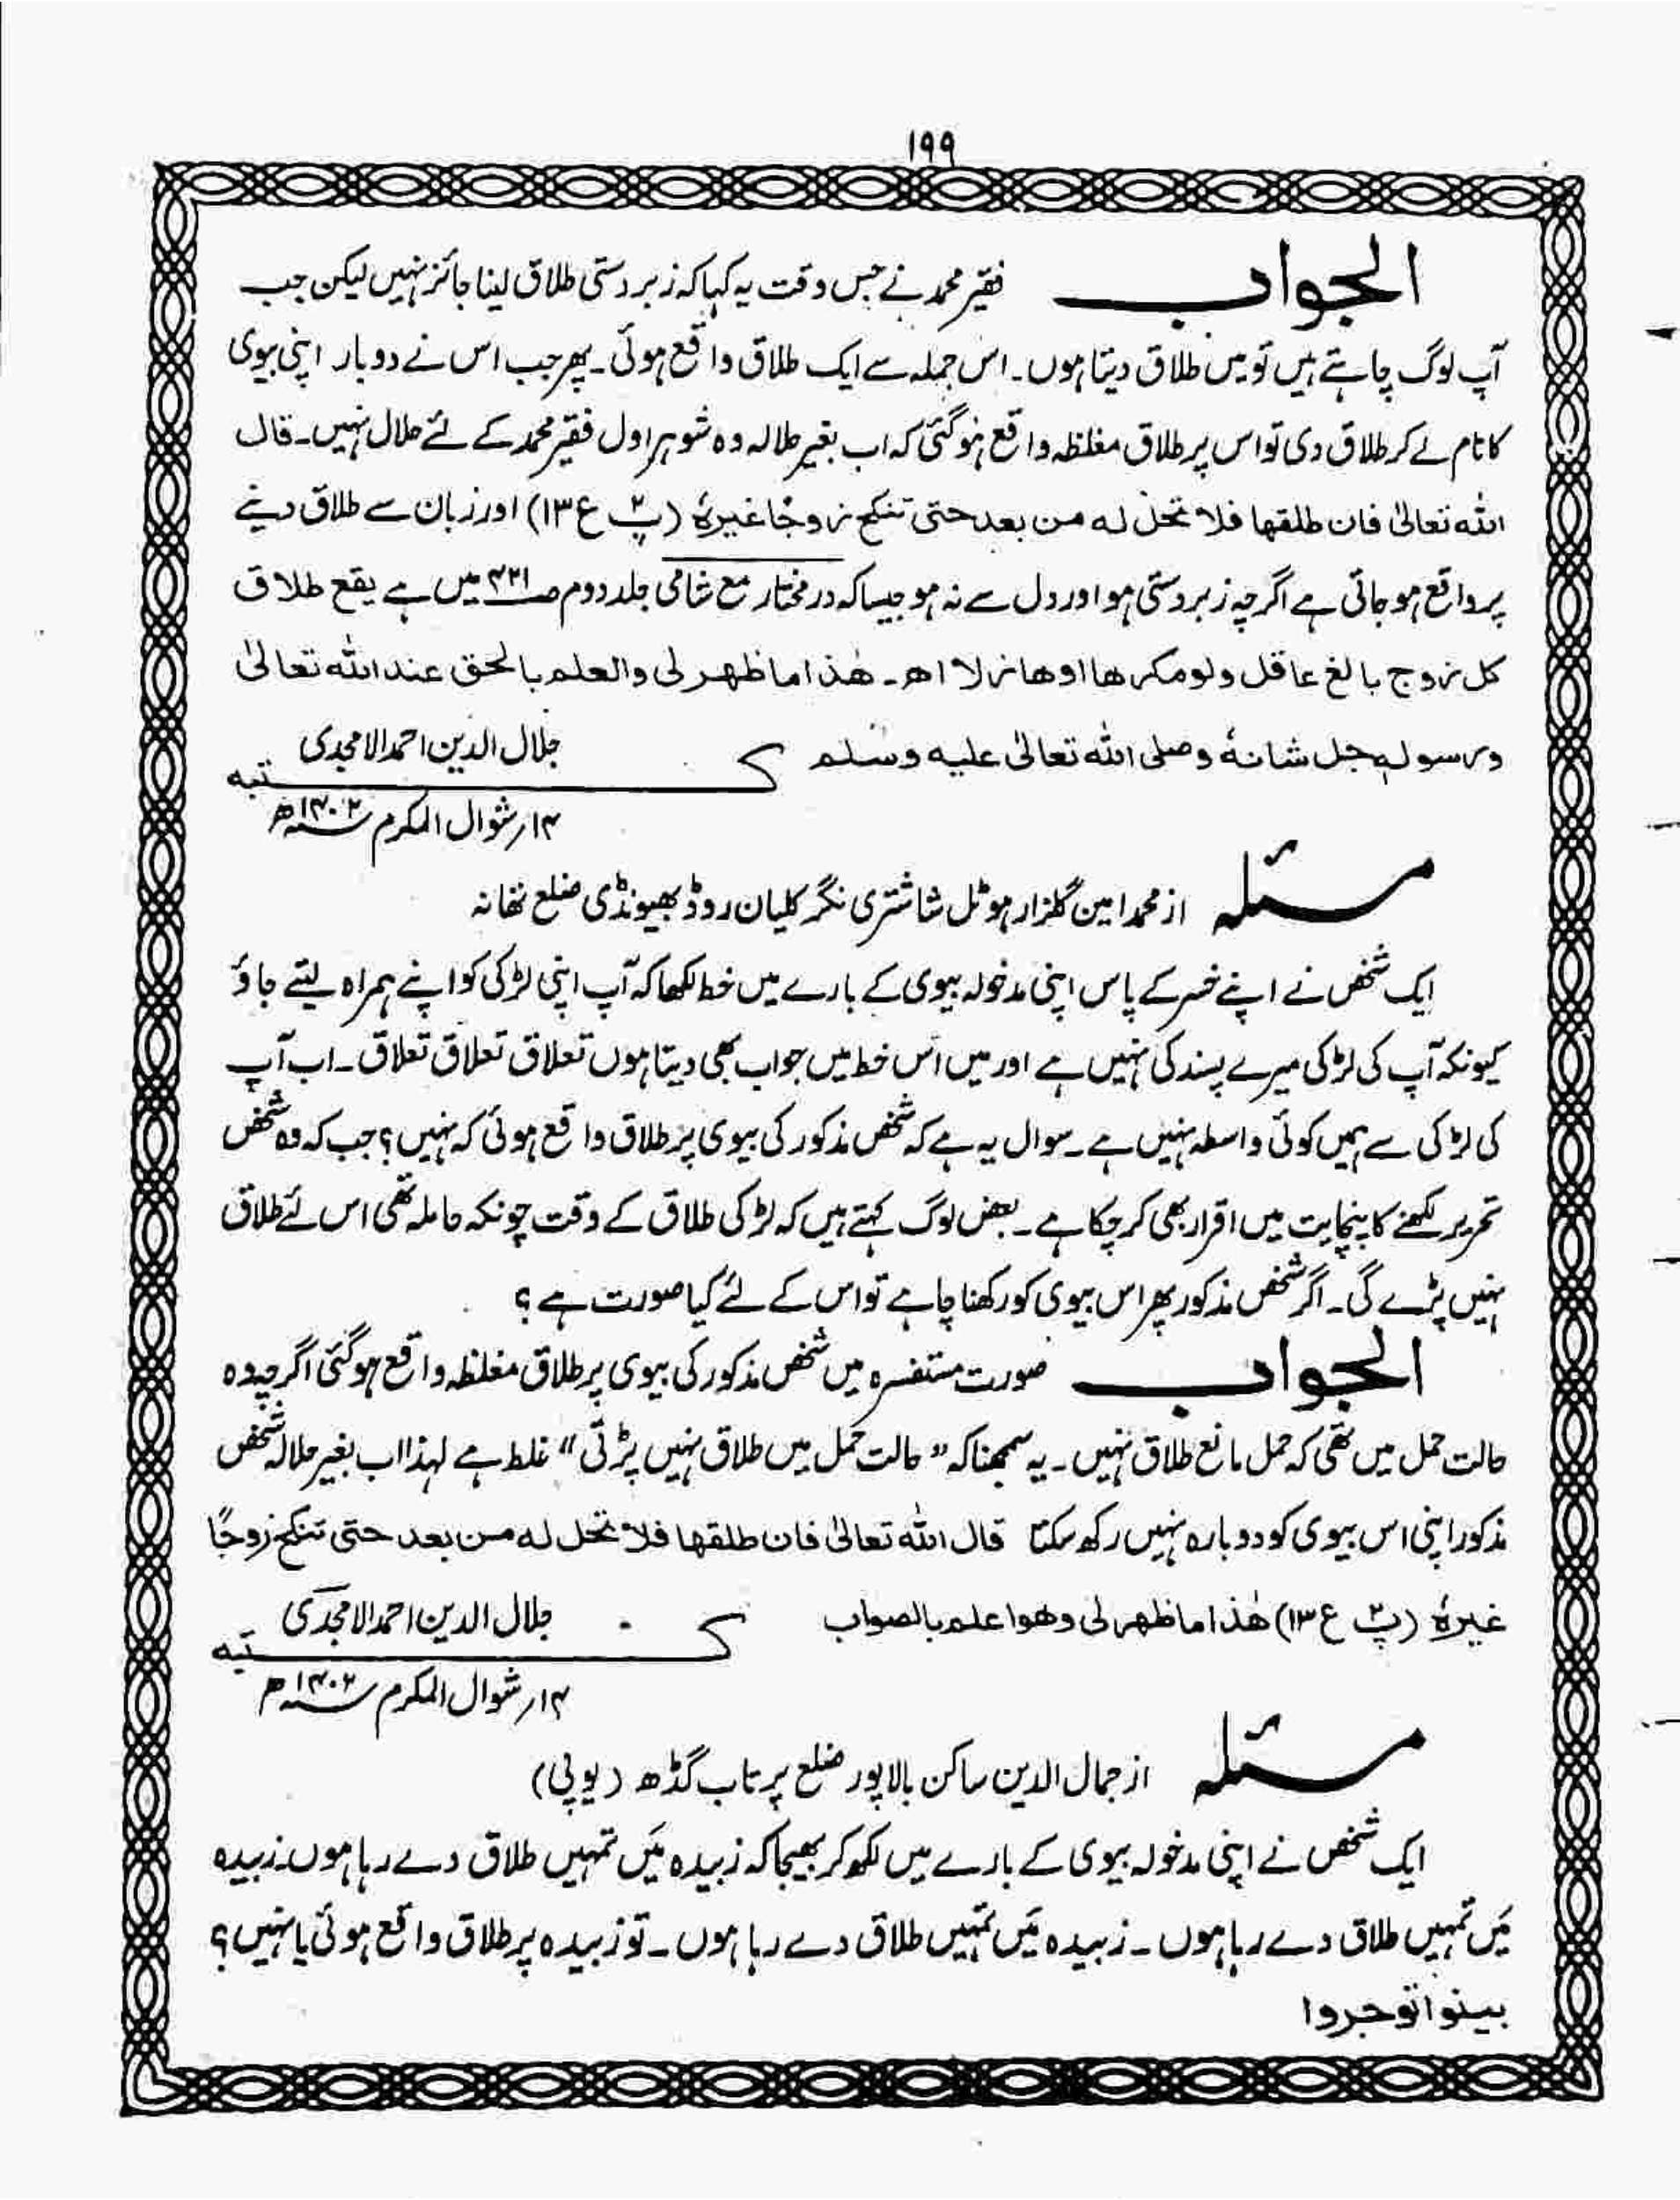 ۱۹۹
الجواب فقیر محمد نے جس وقت یہ کہا کہ زبردستی طلاق لینا جائز نہیں لیکن جب
آپ لوگ چاہتے ہیں تو میں طلاق دیتا ہوں۔ اس جملہ سے ایک طلاق واقع ہوئی۔ پھر جب اس نے دو بار اپنی بیوی
کا نام لے کر طلاق دی تو اس پر طلاق مغلظہ واقع ہوگئی کہ اب بغیر حلالہ وہ شوہر اول فقیر محمد کے لئے حلال نہیں۔ قال
اللہ تعالیٰ فان طلقھا فلا تحل لہ من بعد حتی تنکح زوجًا غیرہٗ (پ۲ ع۱۳) اور زبان سے طلاق دینے
پر واقع ہو جاتی ہے اگرچہ زبردستی ہو اور دل سے نہ ہو جیسا کہ درمختار مع شامی جلد دوم ص۴۲۱ میں ہے یقع طلاق
کل زوج بالغ عاقل ولو مکرھا او ھازلا اھ۔ ھٰذا ما ظھر لی والعلم بالحق عند اللہ تعالیٰ
ورسولہٖ جل شانہٗ وصلی اللہ تعالیٰ علیہ وسلم
جلال الدین احمد الامجدی
کتبہ
۱۴؍ شوال المکرم ۱۴۰۲ھ
مسئلہ از محمد امین گلزار ہوٹل شاشتری نگر کلیان روڈ بھیونڈی ضلع تھانہ
ایک شخص نے اپنے خسر کے پاس اپنی مدخولہ بیوی کے بارے میں خط لکھا کہ آپ اپنی لڑکی کو اپنے ہمراہ لیتے جاؤ
کیونکہ آپ کی لڑکی میرے پسند کی نہیں ہے اور میں اس خط میں جواب بھی دیتا ہوں تعلاق تعلاق تعلاق۔ اب آپ
کی لڑکی سے ہمیں کوئی واسطہ نہیں ہے۔ سوال یہ ہے کہ شخص مذکور کی بیوی پر طلاق واقع ہوئی کہ نہیں؟ جب کہ وہ شخص
تحریر لکھنے کا پنچایت میں اقرار بھی کر چکا ہے۔ بعض لوگ کہتے ہیں کہ لڑکی طلاق کے وقت چونکہ حاملہ تھی اس لئے طلاق
نہیں پڑے گی۔ اگر شخص مذکور پھر اس بیوی کو رکھنا چاہے تو اس کے لئے کیا صورت ہے؟
الجواب صورت مستفسرہ میں شخص مذکور کی بیوی پر طلاق مغلظہ واقع ہوگئی اگرچہ وہ
حالت حمل میں تھی کہ حمل مانع طلاق نہیں۔ یہ سمجھنا کہ ”حالت حمل میں طلاق نہیں پڑتی“ غلط ہے لہٰذا اب بغیر حلالہ شخص
مذکور اپنی اس بیوی کو دوبارہ نہیں رکھ سکتا قال اللہ تعالیٰ فان طلقھا فلا تحل لہ من بعد حتی تنکح زوجًا
غیرہٗ (پ۲ ع۱۳) ھٰذا ما ظھر لی وھو اعلم بالصواب
جلال الدین احمد الامجدی
کتبہ
۱۴؍ شوال المکرم ۱۴۰۲ھ
مسئلہ از جمال الدین ساکن بالاپور ضلع پرتاب گڈھ (یوپی)
ایک شخص نے اپنی مدخولہ بیوی کے بارے میں لکھ کر بھیجا کہ زبیدہ مَیں تمہیں طلاق دے رہا ہوں۔ زبیدہ
مَیں تمہیں طلاق دے رہا ہوں۔ زبیدہ مَیں تمہیں طلاق دے رہا ہوں۔ تو زبیدہ پر طلاق واقع ہوئی یا نہیں؟
بینوا توجروا